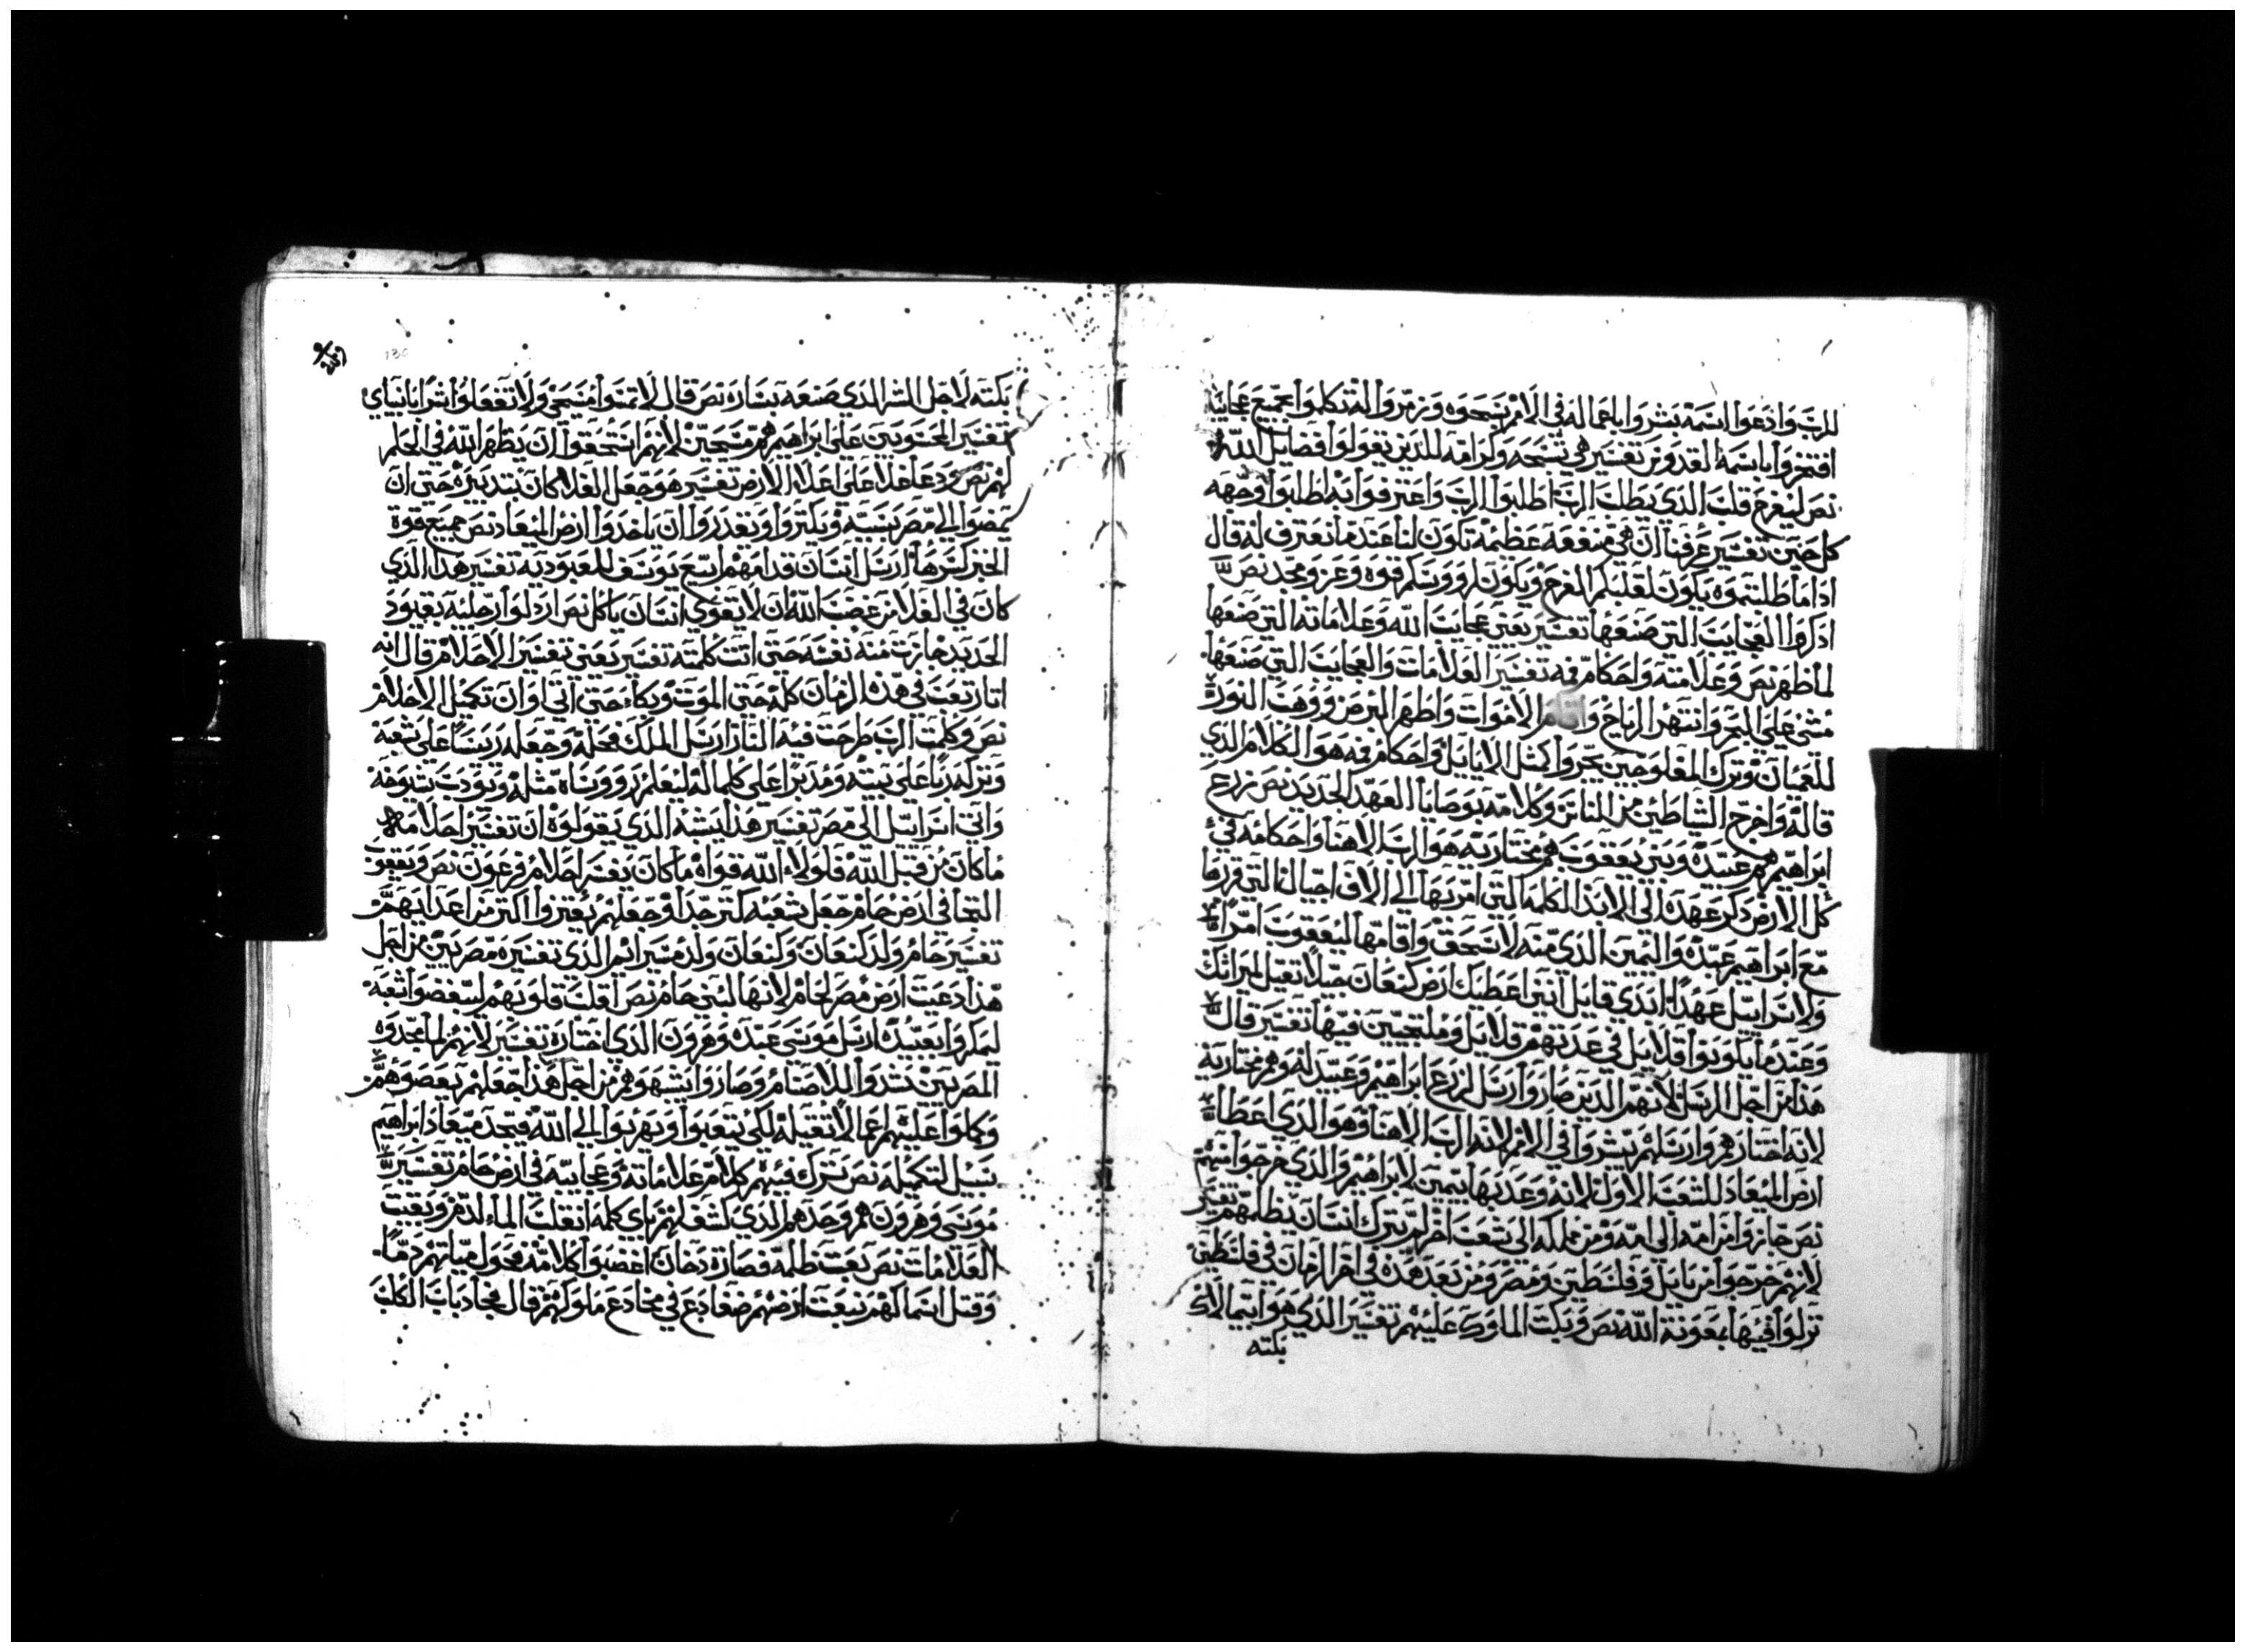 للرب وادعوا اسمه بشروا باعماله في الامم سبحوه وزمروا له تكلموا بجميع عجايبه
افتخروا باسمه القدوس تفسير هي تسبحه وكرامه للذين يقولوا فضايل الله
نص ليفرح قلب الذي يطلب الرب اطلبوا الرب واعترفوا به اطلبوا وجهه
كل حين تفسير عرفنا ان هي منفعه عظيمه تكون لنا عندما نعترف له قال
اذا ما طلبتموه يكون لقلبكم الفرح ويكون لرووسكم قوه وعز ومجد نص
اذكروا العجايب التي صنعها تفسير يعني عجايب الله وعلاماته التي صنعها
لما ظهر نص وعلامته واحكام فمه تفسير العلامات والعجايب التي صنعها
مشى على البحر وانتهر الرياح واقام الاموات واطهر البرص ووهب النور
للعميان وترك المفلوجين يجروا كمثل الايايل واحكام فمه هو الكلام الذي
قاله واخرج الشياطين من الناس وكلامه بوصايا العهد الجديد نص زرع
ابراهيم هم عبيده وبني يعقوب هم مختاريه هو الرب الاهنا واحكامه في
كل الارض ذكر عهده الى الابد الكلمه التي امر بها الى الاف اجيال التي قررها
مع ابراهيم عبده واليمين الذي منه لاسحق واقامها ليعقوب امرا
ولاسراييل عهدا ابدي قايل انني اعطيك ارض كنعان حبلا تقبل لميراثك
وعندما يكونوا قلايل في عدتهم قلايل وملتجيين فيها تفسير قال
هذا من اجل الرسل لانهم الذين صاروا رسل لزرع ابراهيم وعبيد له وهم مختاريه
لانه اختارهم وارسلهم يبشروا في الامم لانه الرب الاهنا وهو الذي اعطا
ارض الميعاد للشعب الاول لانه وعد بها بيمين لابراهيم والذي خرجوا منهم
نص جازوا من امه الى امه ومن مملكه الى شعب اخر لم يترك انسان يظلمهم تفسير
لانهم خرجوا من بابل وفلسطين ومصر ومن بعد هذه في اخر الزمان في فلسطين
نزلوا فيها بمعونة الله نص وبكت الملوك عليهم تفسير الذي هو ابيمالاك
بكته
بكته لاجل الشر الذي صنعه بساره نص قال لا تمسوا مسيحي ولا تفعلوا شرا بانبياي
تفسير المحسوبين على ابراهيم هم مسيحين لانهم استحقوا ان يظهر الله في الحلم
لهم نص ودعا غلا على اعلاء الارض تفسير هو وجعل الغلا كان بتدبيره حتى ان
يمضوا الي مصر بسببه ويكتروا ويقدروا ان ياخدوا ارض الميعاد نص جميع قوة
الخبز كسرها ارسل انسان قدامهم ابتيع يوسف للعبوديه تفسير هذا الذي
كان في الغلا من غضب الله ان لا يقوي انسان ياكل نص اردلوا رجليه بقيود
الحديد جازت منه نفسه حتى اتت كلمته تفسير يعني تفسير الاحلام قال انه
نص وكلمت الرب طرحت فيه النار ارسل الملك فحله وجعله ريسا على شعبه
وتركه ربا على بيته ومدبرا على كلما له ليعلم رووساه مثله ويودب شيوخه
واتى اسراييل الى مصر تفسير هذا يشبه الذي يقولوه ان تفسير احلامه
ما كان من قبل الله فلولاء الله قواه ما كان يفسر احلام فرعون نص ويعقوب
التجا في ارض حام جعل شعبه كتر جدا وجعلهم يعتزوا اكتر من اعدايهم
تفسير حام ولد كنعان وكنعان ولد مسرائم الذي تفسيره مصريين من اجل
هذا دعيت ارض مصر لحام لانها لبني حام نص اقلب قلوبهم ليبغضوا شعبه
ليمكروا بعبيده ارسل موسى عبده وهرون الذي اختاره تفسير لانهم لما مجدوه
وكملوا عليهم اعمالا تقيله لكي يتعبوا ويهربوا الى الله فيجد ميعاد ابراهيم
سبيل لتكميله نص ترك فيهم كلام علاماته وعجايبه في ارض حام تفسير
موسى وهرون هم وحدهم الذي كشف لهم باي كلمه انقلب الماء لدم وبقيت
العلامات نص بعت ظلمه فصاره دخان اغضبوا كلامه فحول مياههم دما
وقتل اسماكهم نبعت ارضهم ضفادع في مخادع ملوكهم قال فجا دباب الكلب